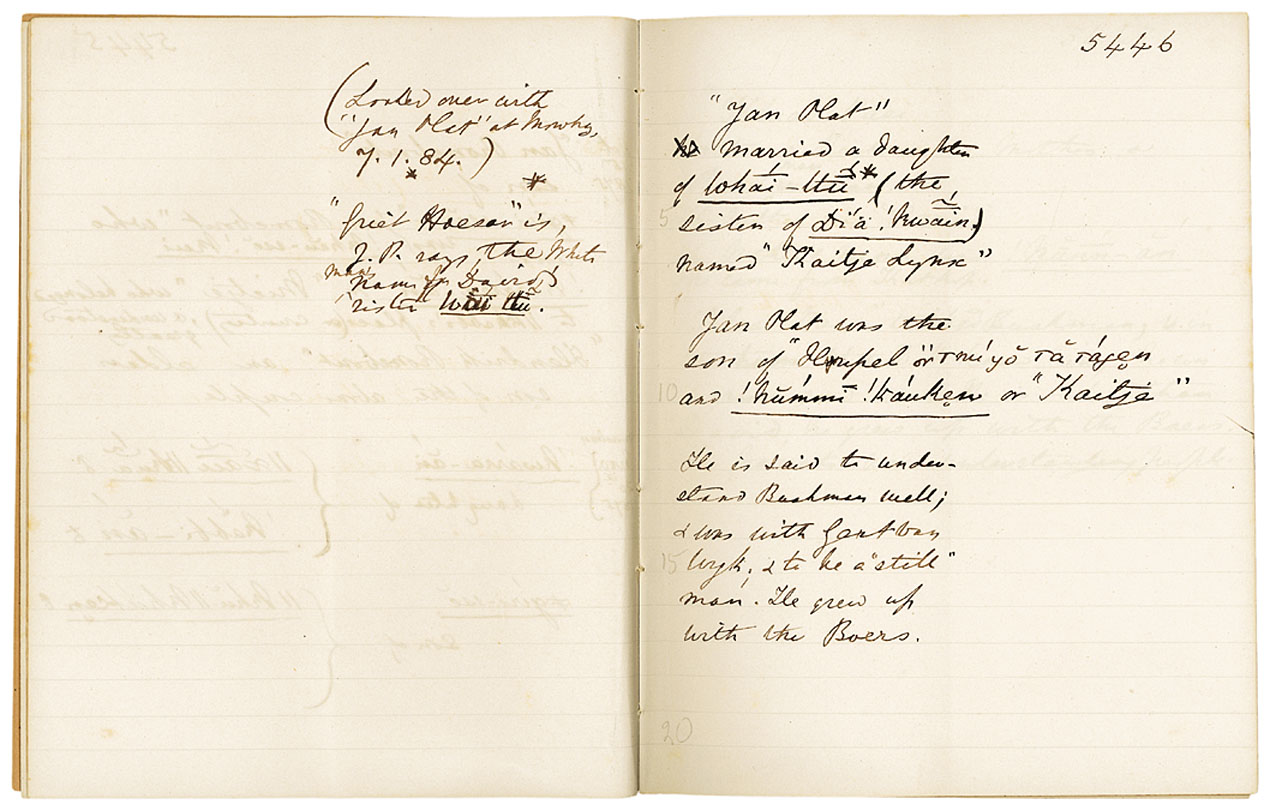 (Looked over with
"Jan Plat" at Mowbray,
7. 1. 84.)
*
*
"Griet Hoesar" is,
J. P. says, the White
man's
name for David's
sister
5446
"Jan Plat"
married a daughter
of !khai-ttū* (the
5 sister of Dĭ́ä !kwãin)
named "Kaitje Lynx"
Jan Plat was the
son of
10 and !kŭ́mmĭ !káuken or "Kaitje"
He is said to under-
stand Bushman well;
& was with Gert van
15 Wyk, & to be a "still"
man. He grew up
with the Boers.
20